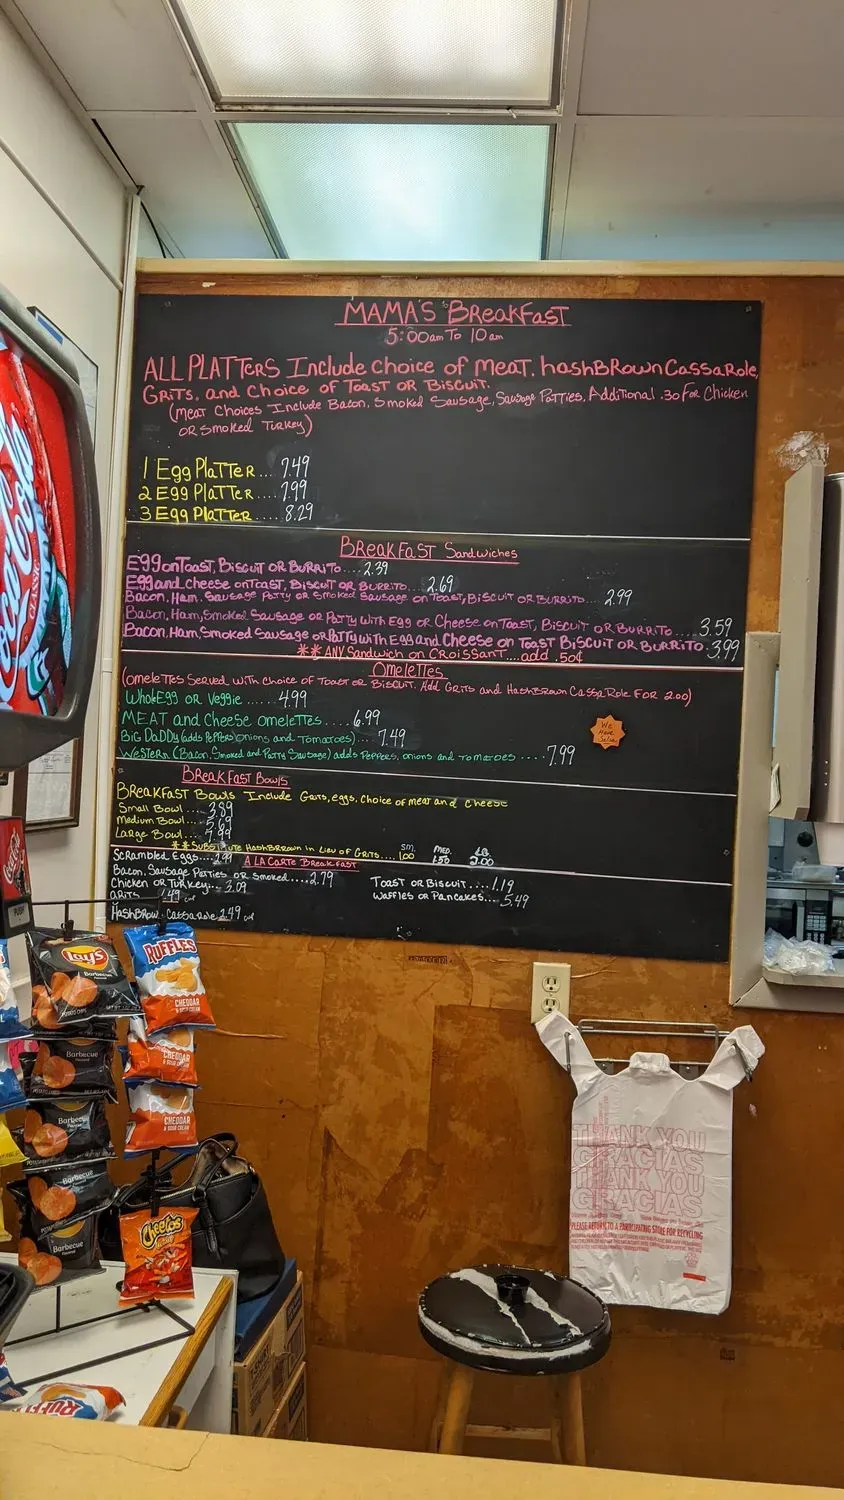 MAMA'S BREAKFAST
5:00am To 10am
ALL PLATTERS Include choice of meat, hashBrown CassaRole,
GRITS, and Choice of Toast OR BISCUIT.
(MEAT Choices Include Bacon, Smoked Sausage, Sausage Patties, Additional .30 FOR Chicken
OR Smoked Turkey)
1 Egg PlaTTeR... 7.49
2 Egg PlaTTeR.... 7.99
3 Egg PlaTTeR.... 8.29
BREAKFAST Sandwiches
Egg on Toast, BISCUIT OR BURRITO.... 2.39
Egg and cheese on Toast, BISCUIT OR BURRITO... 2.69
Bacon, Ham, Sausage Patty or Smoked Sausage on Toast, BISCUIT OR BURRITO.... 2.99
Bacon, Ham, Smoked Sausage or Patty with Egg OR Cheese on Toast, BISCUIT OR BURRITO.... 3.59
Bacon, Ham, Smoked Sausage or Patty with Egg and Cheese on Toast BISCUIT OR BURRITO. 3.99
**ANY Sandwich on CROISSANT....add .50¢
Omelettes
(omeleTTes Served with Choice of Toast or BISCUIT. Add Grits and HashBrown CassaRole FOR 2.00)
Whole Egg OR Veggie ..... 4.99
MEAT and Cheese omeletTes..... 6.99
BIG DADDy (adds PePPers, onions and Tomatoes)... 7.49
Western (Bacon, Smoked and Patty Sausage) adds PePPeRs, onions and Tomatoes .... 7.99
We
Have
Salsa
BREAKFAST BowLs
BREAKFAST Bowls Include Grits, eggs, choice of meat and cheese
Small Bowl.... 3.89
Medium Bowl.... 5.69
Large Bowl.... 7.99
**SUBSTITUTE HASHBROWN in Lieu of Grits.... SM. 1.00 MED. 1.50 LG 2.00
Scrambled Eggs... 2.99
A LA CARTE BREAKFAST
Bacon, Sausage Patties or smoked..... 2.79
Chicken OR Turkey... 3.09
GRITS 1.49 cup
HashBrown Cassarole 2.49 cup
Toast or Biscuit.... 1.19
Waffles or Pancakes... 5.49
Coca-Cola
CLASSIC
Coca-Cola
Lay's
Barbecue
RUFFLES
CHEDDAR
& SOUR CREAM
Barbecue
CHEDDAR
& SOUR CREAM
Barbecue
CHEDDAR
& SOUR CREAM
Barbecue
Barbecue
Cheetos
RUFFLES
THANK YOU
GRACIAS
THANK YOU
GRACIAS
PLEASE RETURN TO A PARTICIPATING STORE FOR RECYCLING